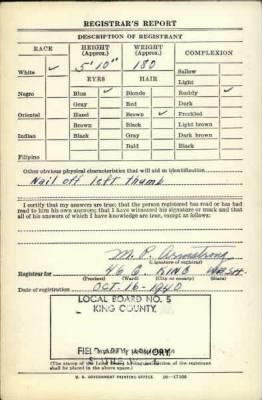 REGISTRAR'S REPORT
DESCRIPTION OF REGISTRANT
RACE HEIGHT (Approx.) WEIGHT (Approx.) COMPLEXION
White ✓ 5' 10" 180 Sallow
EYES HAIR Light
Negro Blue ✓ Blonde Ruddy ✓
Gray Red Dark
Oriental Hazel Brown ✓ Freckled
Brown Black Light brown
Indian Black Gray Dark brown
Bald Black
Filipino
Other obvious physical characteristics that will aid in identification
Nail off left thumb
I certify that my answers are true; that the person registered has read or has had
read to him his own answers; that I have witnessed his signature or mark and that
all of his answers of which I have knowledge are true, except as follows:
M. P. Armstrong
(Signature of registrar)
Registrar for KING WASH.
(Precinct) (Ward) (City or county) (State)
Date of registration OCT. 16 - 1940
LOCAL BOARD NO. 5
KING COUNTY,
FIELD ARTY. ARMORY
(The stamp of the Local Board having jurisdiction of the registrant
shall be placed in the above space.)
U. S. GOVERNMENT PRINTING OFFICE